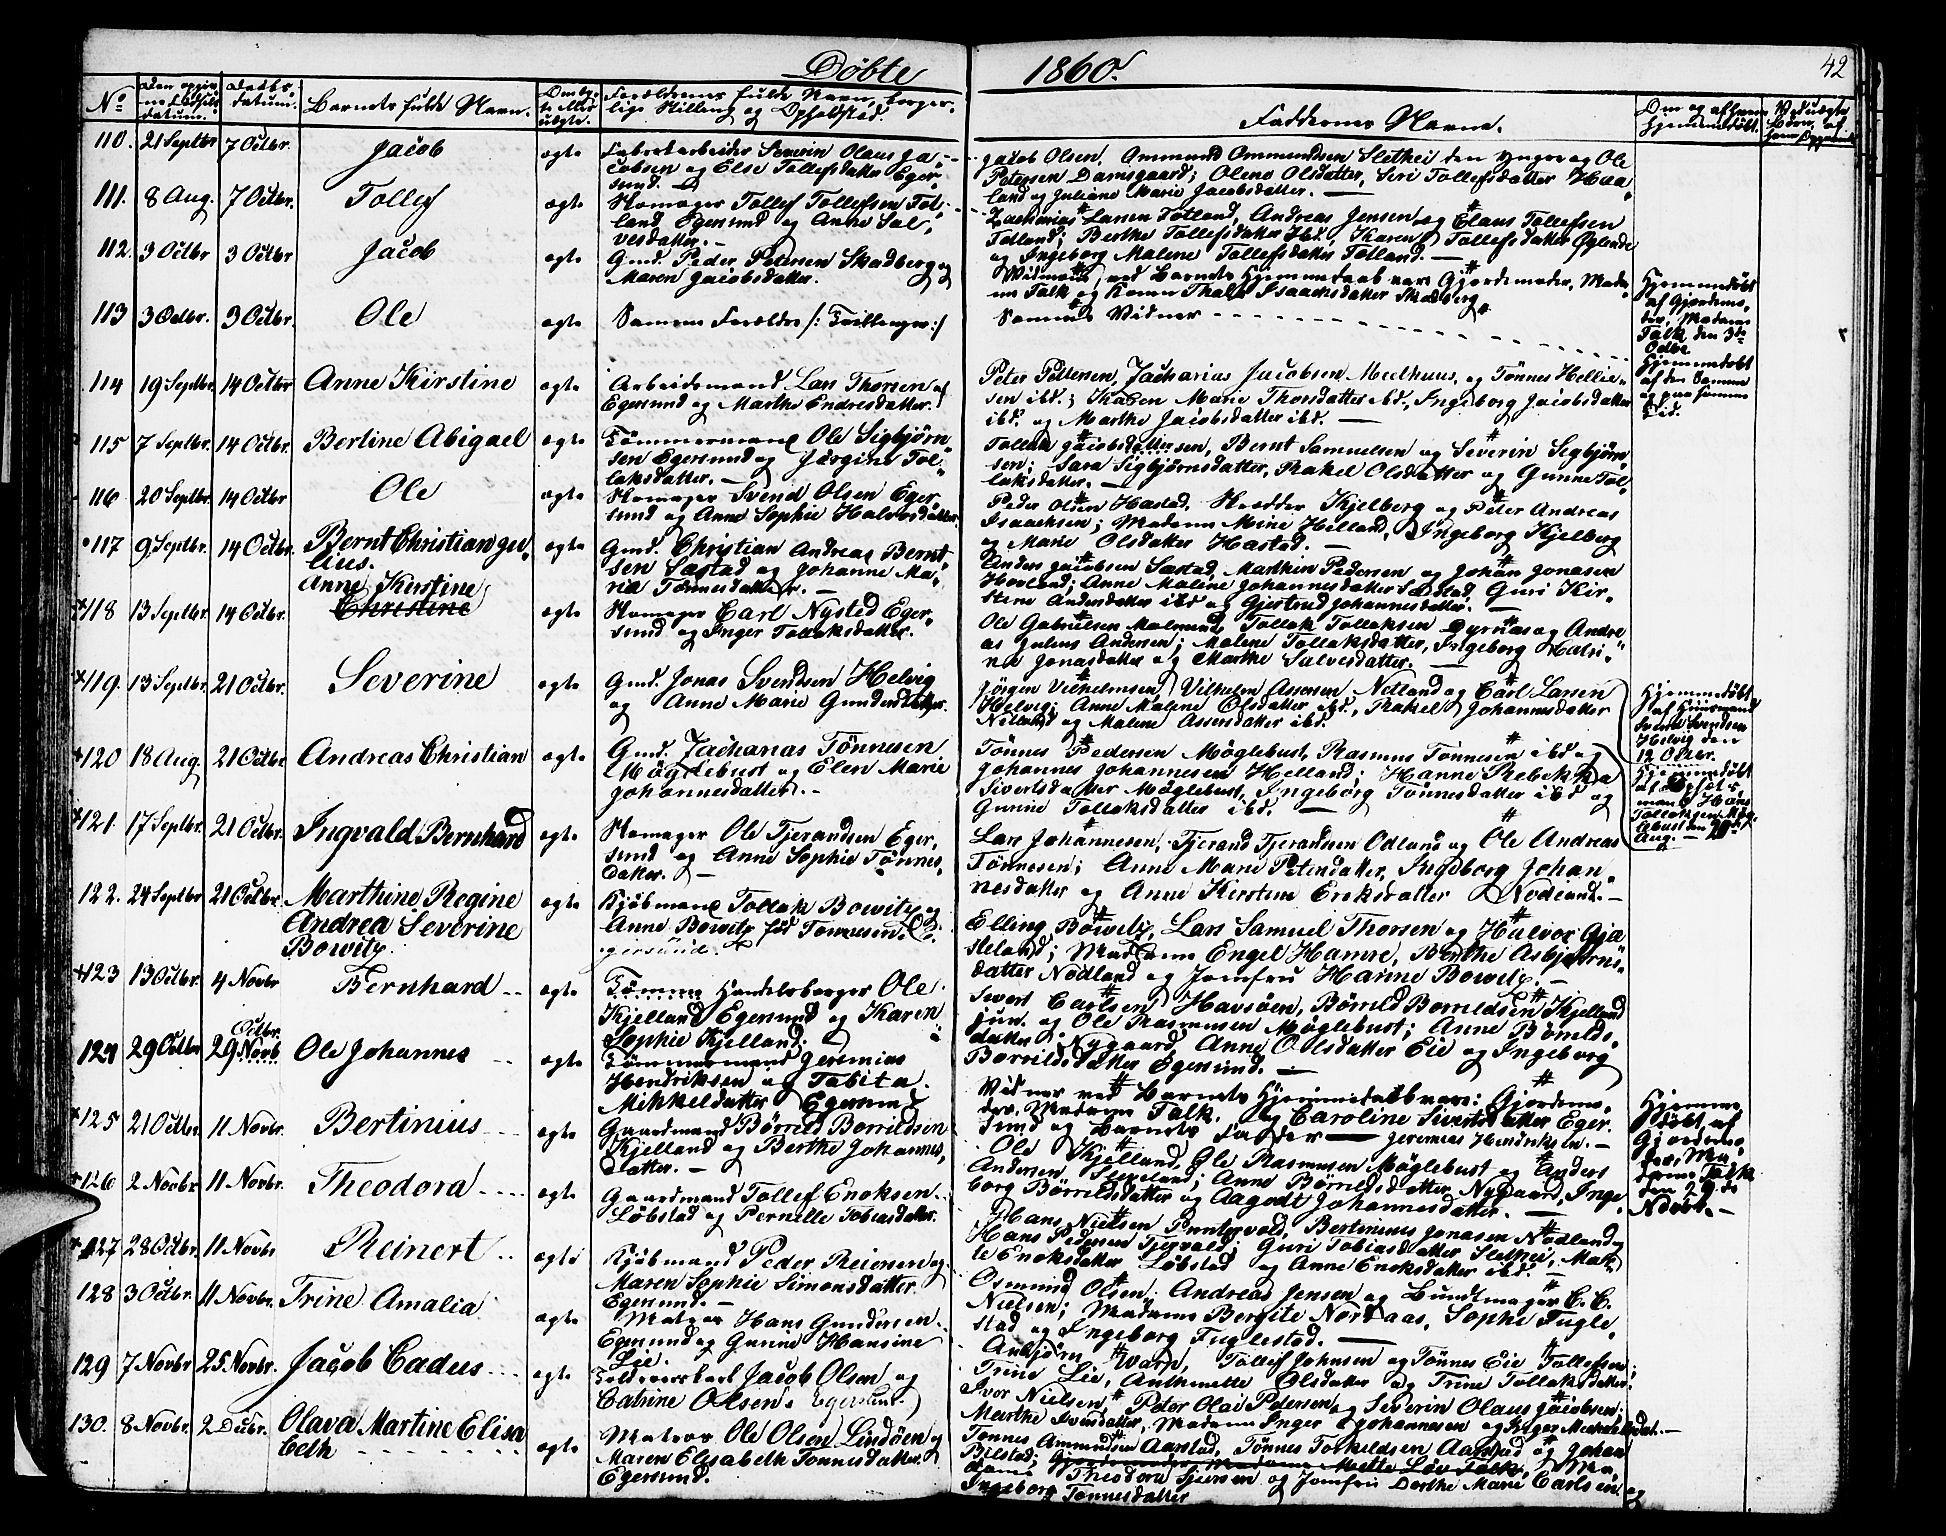 Døbte 1860.
42
No
Barnets fulde Navn.
Faddernes Navne.
110. 21 Septbr 7 Octbr. Jacob ægte
Jacobsen og Else Tollefsdatter Eger-
sund.
Jacob Olsen, Ommund Ommundsen Slethei den yngre og Ole
Petersen Damsgaard; Olene Olsdatter, Seri Tollefsdatter Haa-
land og Juliane Marie Jacobsdatter. —
111. 8 Aug. 7 Octbr. Tollef ægte
Tollef Tollefsen Tot-
land Egersund og Anne Sal-
vesdatter. —
Zacharias Larsen Totland, Andreas Jensen og Claus Tollefsen
Totland; Berthe Tollefsdatter ibd., Karen Tollefsdatter
og Ingeborg Malene Tollefsdatter Totland. —
112. 3 Octbr 3 Octbr Jacob ægte
Gmd. Peder Petersen Skadberg og
Maren Jacobsdatter.
Vidner ved Barnets Hjemmedaab vare Gjordemoder, Mada-
me Falk og Kone Thale Isaachsdatter Skadberg.
113 3 Octbr. 3 Octbr. Ole ægte
Samme Forældre /: Tvillinger :/
Samme Vidner
Hjemmedøbt
af Gjordemo-
der, Madame
Falk den 3de
Octbr
114 19 Septbr. 14 Octbr Anne Kirstine ægte
Arbeidsmand Lars Thorsen af
Egersund og Marthe Endresdatter.
Peter Pettersen, Zacharias Jacobsen Meethuus, og Tønnes Hellie-
sen ibd.; Karen Marie Thorsdatter ibd., Ingeborg Jacobsdatter
ibd. og Marthe Jacobsdatter ibd. —
Hjemmedøbt
af den Samme
og paa samme
Tid.
115 7 Septbr. 14 Octbr. Bertine Abigael ægte
Tømmermand Ole Sigbjørn-
sen Egersund og Jørgine Tol-
laksdatter. —
Tollak Jacobsen, Bernt Samuelsen og Severin Sigbjørn-
sen; Sara Sigbjørnsdatter, Rakel Olsdatter og Gunne Tol-
laksdatter. —
116 20 Septbr. 14 Octbr Ole ægte
Svend Olsen Eger-
sund og Anne Sophie Halvorsdatter.
Peder Olsen Hastad, Kjelberg og Peter Andreas
Isaachsen; Madame Mine Helland, Ingeborg Kjelberg
og Marie Olsdatter Hastad. —
117 9 Septbr. 14 Octbr. Bernt Christian Ju-
lius. ægte
Gmd. Christian Andreas Bernt-
sen Sæstad og Johanne Ma-
ria Tønnesdatter. —
Anders Jacobsen Sæstad, Marthin Pedersen og Johan Jonasen
Hovland; Anne Malene Johannesdatter Sæstad, Guri Kir-
stine Andersdatter ibd og Gjertrud Johannesdatter. —
118 13 Septbr. 14 Octbr. Anne Kirstine
Christine ægte
Carl Nysted Eger-
sund og Inger Tollaksdatter.
Ole Gabrielsen Tollak Tollaksen og Andre-
as Julius Andersen; Malene Tollaksdatter, Ingeborg Katri-
ne Jonasdatter og Marthe Salvesdatter. —
119. 13 Septbr. 21 Octbr. Severine ægte
Gmd. Jonas Svendsen Helvig
og Anne Marie Gundersdatter.
Jørgen Vilhelmsen, Vilhelm Assersen Netland og Carl Larsen
Helvig; Anne Malene Olsdatter ibd., Rakel Johannesdatter
Netland og Malene Assersdatter ibd.
Hjemmedøbt
af Huusmand
Svend Svendsen
Helvig den
12 Octbr.
120 18 Aug. 21 Octbr Andreas Christian ægte
Gmd. Zacharias Tønnesen
Møglebust og Elen Marie
Johannesdatter. —
Tønnes Pedersen Møglebust, Rasmus Tønnesen ibd og
Johannes Johannesen Helland; Hanne Rebekka
Sivertsdatter Møglebust, Ingeborg Tønnesdatter ibd og
Gunne Tollaksdatter ibd. —
Hjemmedøbt
Hans
Tollaksen Møg-
lebust den
Aug. —
121. 17 Septbr. 21 Octbr. Ingvald Bernhard ægte
Ole Tjerandsen Eger-
sund og Anne Sophie Tønnes-
datter. —
Lars Johannesen, Tjerand Tjerandsen Odland og Ole Andreas
Tønnesen; Anne Marie Petersdatter, Ingeborg Johan-
nesdatter og Anne Kirstine Eriksdatter Nodland. —
122. 24 Septbr 21 Octbr. Marthine Regine
Andrea Severine
Bowitz. ægte
Kjøbmand Tollak Bowitz og
Anne Bowitz født Tønnesen, E-
gersund.
Elling Bowitz, Lars Samuel Thorsen og Halvor Gja-
steland; Madame Engel Hamre, Berthe Asbjørns-
datter Nodland og Jomfru Hanne Bowitz. —
123 13 Octbr. 4 Novbr Bernhard ægte
Handelsborger Ole
Kjelland Egersund og Karen
Sophie Kjelland.
Sivert Carlsen Havsøen, Børrild Borrildsen Kjelland
jun. og Ole Rasmusen Møglebust; Anne Børrilds-
datter Nygaard, Anne Olsdatter Eie og Ingeborg
Børrildsdatter Egersund. —
124 29 Octbr 29 Novb. Octbr. Ole Johannes ægte
Tømmermand Jeremias
Hendriksen og Tabita
Mikkelsdatter Egersund
Vidner ved Barnets Hjemmedaab vare: Gjordemo-
der, Madame Falk og Caroline Sivertsdatter Eger-
sund og Barnets Fader — Jeremias Hendriksen. —
Hjemme-
døbt af
Gjordemo-
der, Ma-
dame Falk
den 29de
125 21 Octbr. 11 Novbr. Bertinius ægte
Gaardmand Børrild Borrildsen
Kjelland og Berthe Johannes-
datter. —
Ole Kjelland, Ole Rasmusen Møglebust og Anders
Andersen; Anne Børrildsdatter Nygaard, Inge-
borg Børrildsdatter og Aagodt Johannesdatter. —
126 2 Novbr 11 Novbr. Theodora ægte
Gaardmand Tollef Enoksen
Løbstad og Pernille Tobiasdatter.
Hans Nielsen Puntervold, Bertinius Jonasen Nodland og
Hans Pedersen Tjervald; Guri Tobiasdatter Slethei, Mal-
le Enoksdatter Løbstad og Anne Enoksdatter ibd. —
127 28 Octbr. 11 Novbr Reinert ægte
Kjøbmand Peder Reinersen og
Maren Sophie Simonsdatter
Egersund. —
Osmund Olsen, Andreas Jensen og Bundtmager C. C.
Nielsen; Madame Bergite Nordaas, Sophie Fugle-
stad og Ingeborg Fuglestad. —
128 3 Octbr. 11 Novbr. Trine Amalia ægte
Matros Hans Gundersen
Egersund og Gunne Hansine
Asbjørn Warp, Tollef Johnsen og Tønnes Eie Tollefsen;
Trine Lie, Anthonette Olsdatter og Trine Tollaksdatter.
129 7 Novbr 25 Novbr. Jacob Cadus ægte
Jacob Olsen og
Catrine Olsen, Egersund.
Ivor Nielsen, Peter Olai Petersen og Severin Olaus Jacobsen;
Marthe Iversdatter, Madame Inger Johannesen og
130. 8 Novbr. 2 Decbr. Olava Martine Elisa-
beth ægte
Matros Ole Olsen Lindøen og
Maren Elisabeth Tønnesdatter
Egersund.
Tønnes Ammundsen Aarstad, Tønnes Torkildsen Aarstad og Johan
Bilstad; Gjordemoder Madame Mette Lov Falk, Ma-
dame Theodora Iversen og Jomfru Dorthe Marie Carlsen og
Ingeborg Tønnesdatter